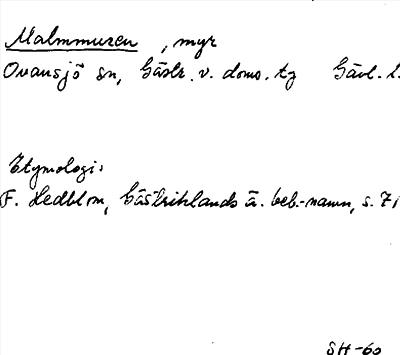 Malmmuren, myr
Ovansjö sn, Gästr. v. doms. tg Gävl. l.
Etymologi:
F. Hedblom, Gästriklands ä. beb.-namn, s. 71
SH-60